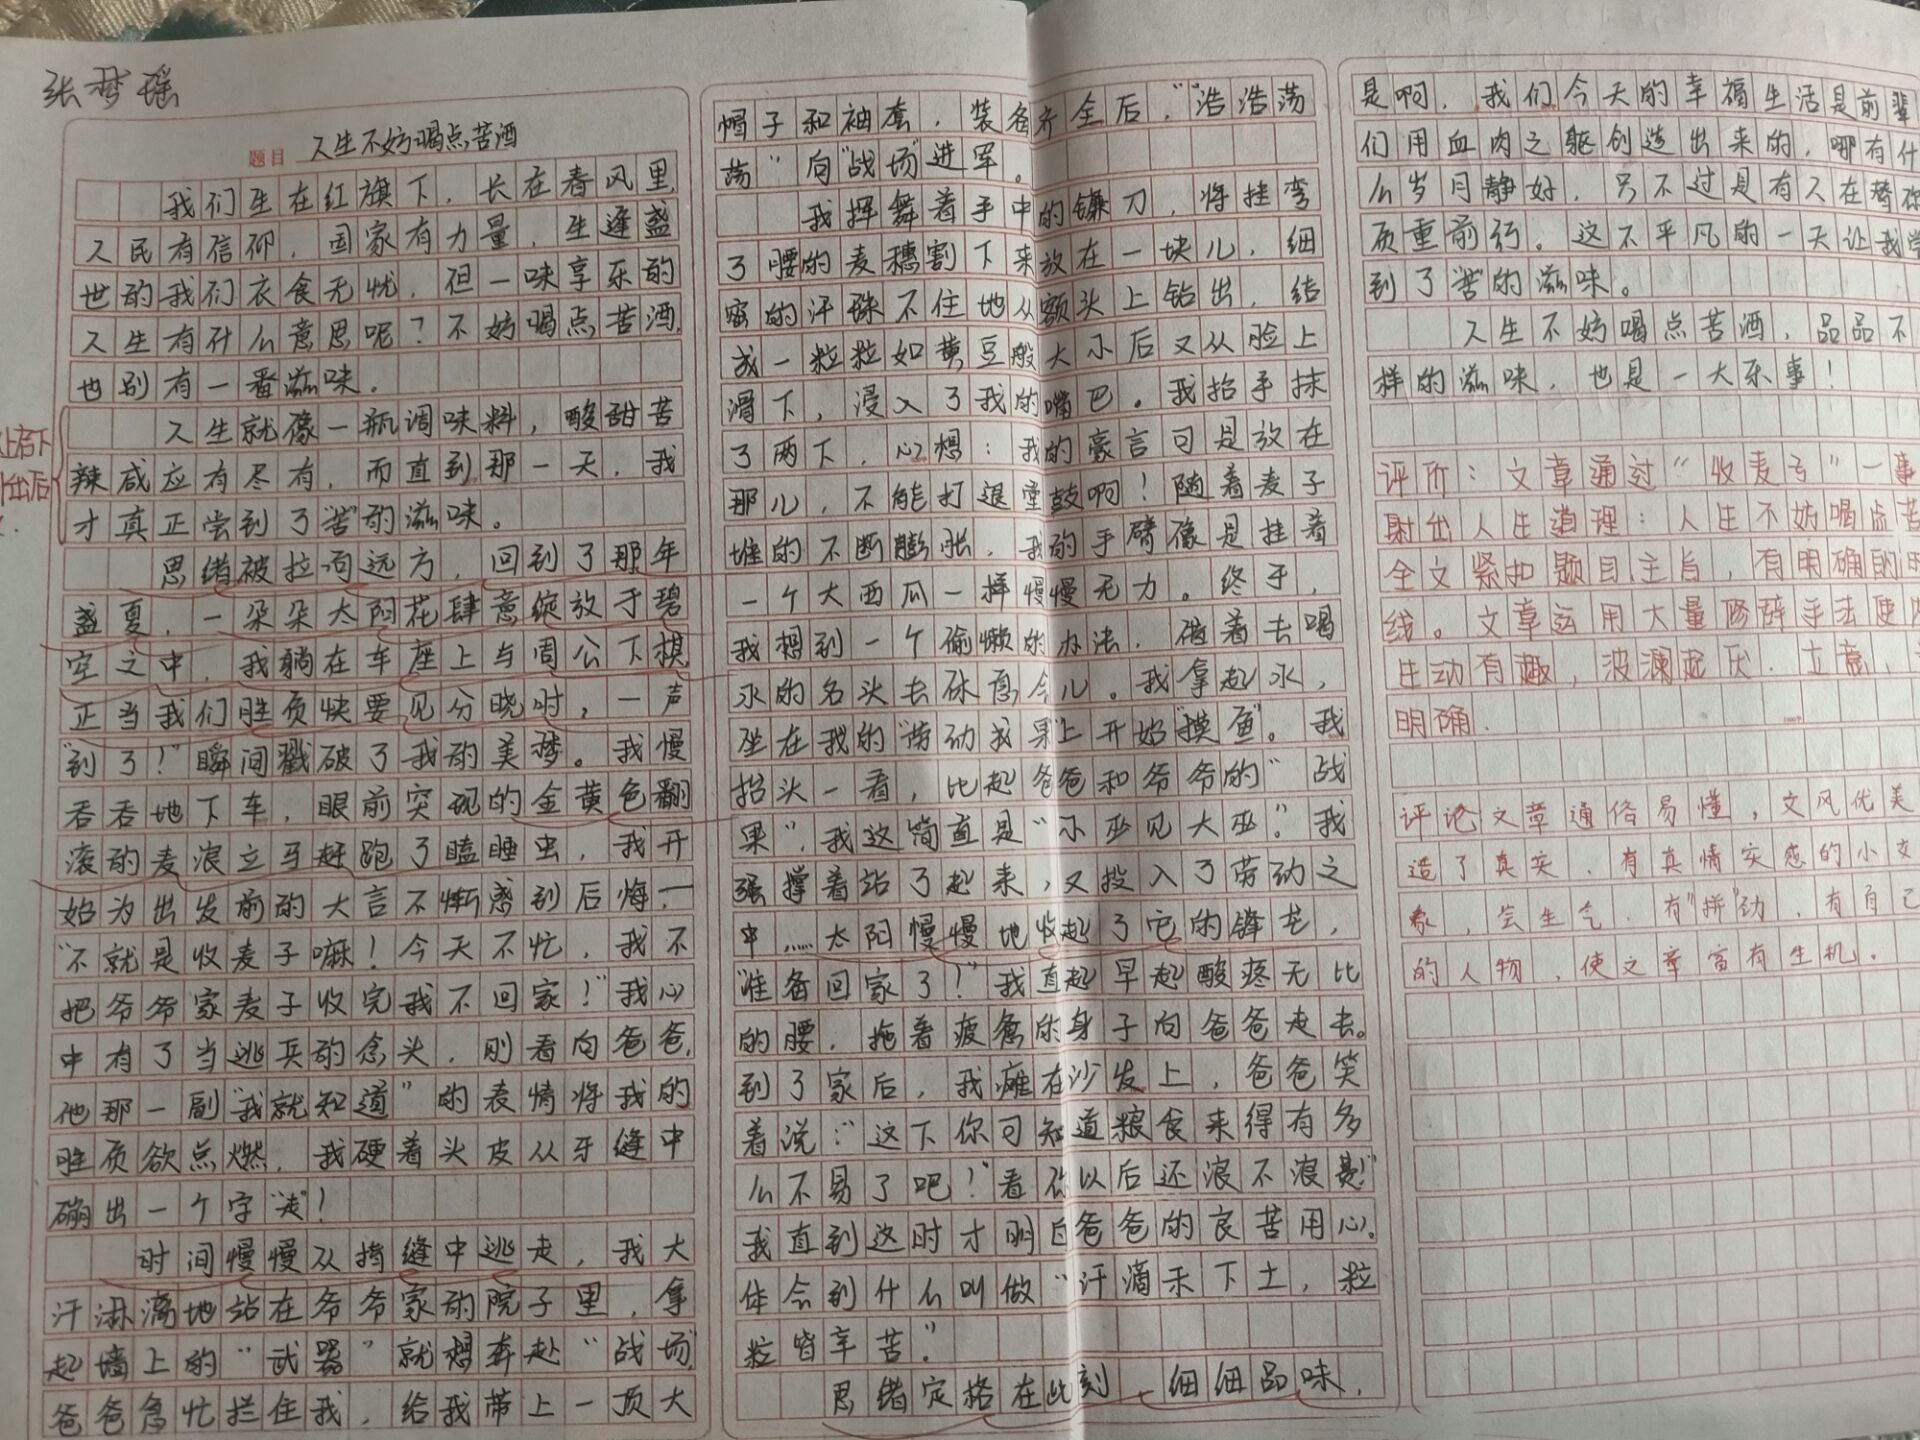 张梦瑶
题目 人生不妨喝点苦酒
我们生在红旗下，长在春风里，
人民有信仰，国家有力量，生逢盛
世的我们衣食无忧，但一味享乐的
人生有什么意思呢？不妨喝点苦酒，
也别有一番滋味。
人生就像一瓶调味料，酸甜苦
辣咸应有尽有，而直到那一天，我
才真正尝到了“苦”的滋味。
思绪被拉向远方，回到了那年
盛夏，一朵朵太阳花肆意绽放于碧
空之中，我躺在车座上与周公下棋，
正当我们胜负快要见分晓时，一声
“到了！”瞬间戳破了我的美梦。我慢
吞吞地下车，眼前突现的金黄色翻
滚的麦浪立马赶跑了瞌睡虫，我开
始为出发前的大言不惭感到后悔一
“不就是收麦子嘛！今天不忙，我不
把爷爷家麦子收完我不回家！”我心
中有了当逃兵的念头，刚看向爸爸，
他那一副“我就知道”的表情将我的
胜负欲点燃，我硬着头皮从牙缝中
蹦出一个字“走”！
时间慢慢从指缝中逃走，我大
汗淋漓地站在爷爷家的院子里，拿
起墙上的“武器”就想奔赴“战场”
爸爸急忙拦住我，给我带上一顶大
帽子和袖套，装备齐全后，“浩浩荡
荡”向“战场”进军。
我挥舞着手中的镰刀，将挂弯
了腰的麦穗割下来放在一块儿，细
密的汗珠不住地从额头上钻出，结
成一粒粒如黄豆般大小后又从脸上
滑下，浸入了我的嘴巴。我抬手抹
了两下，心想：我的豪言可是放在
那儿，不能打退堂鼓啊！随着麦子
堆的不断膨胀，我的手臂像是挂着
一个大西瓜一样慢慢无力。终于，
我想到一个偷懒的办法，借着去喝
水的名头去休息会儿。我拿起水，
坐在我的“劳动成果”上开始“摸鱼”。我
抬头一看，比起爸爸和爷爷的“战
果”，我这简直是“小巫见大巫”。我
强撑着站了起来，又投入了劳动之
中……太阳慢慢地收起了它的锋芒，
“准备回家了！”我直起早起酸疼无比
的腰，拖着疲惫的身子向爸爸走去。
到了家后，我瘫在沙发上，爸爸笑
着说：“这下你可知道粮食来得有多
么不易了吧！”看你以后还浪不浪费！”
我直到这时才明白爸爸的良苦用心。
体会到什么叫做“汗滴禾下土，粒
粒皆辛苦。”
思绪定格在此刻，细细品味，
是啊，我们今天的幸福生活是前辈
们用血肉之躯创造出来的，哪有什
么岁月静好，只不过是有人在替你
质重前行。这不平凡的一天让我尝
到了“苦”的滋味。
人生不妨喝点苦酒，品品不
样的滋味，也是一大乐事！
评价：文章通过“收麦子”一事
射出人生道理：人生不妨喝点苦
全文紧扣题目主旨，有明确的
线。文章运用大量修辞手法使
生动有趣，波澜起伏，立意
明确.
评论文章通俗易懂，文风优美
造了真实，有真情实感的小文
象，会生气，有“拼”劲，有自己
的人物，使文章富有生机。